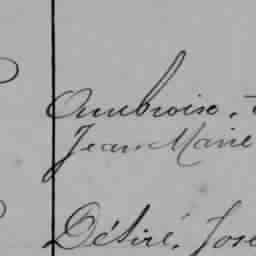 Ambroise,
Jean Marie
Désiré, José